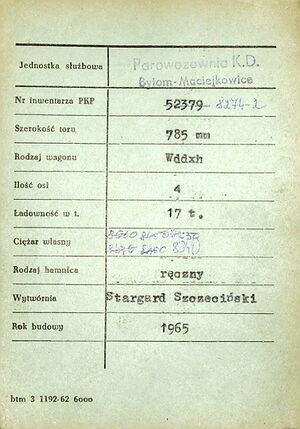 Jednostka służbowa Parowozownia K.D.
Bytom-Maciejkowice
Nr inwentarza PKP 52379 - 8274-2
Szerokość toru 785 mm
Rodzaj wagonu Wddxh
Ilość osi 4
Ładowność w t. 17 t.
Ciężar własny
Rodzaj hamulca ręczny
Wytwórnia Stargard Szczeciński
Rok budowy 1965
btm 3 1192-62 6000